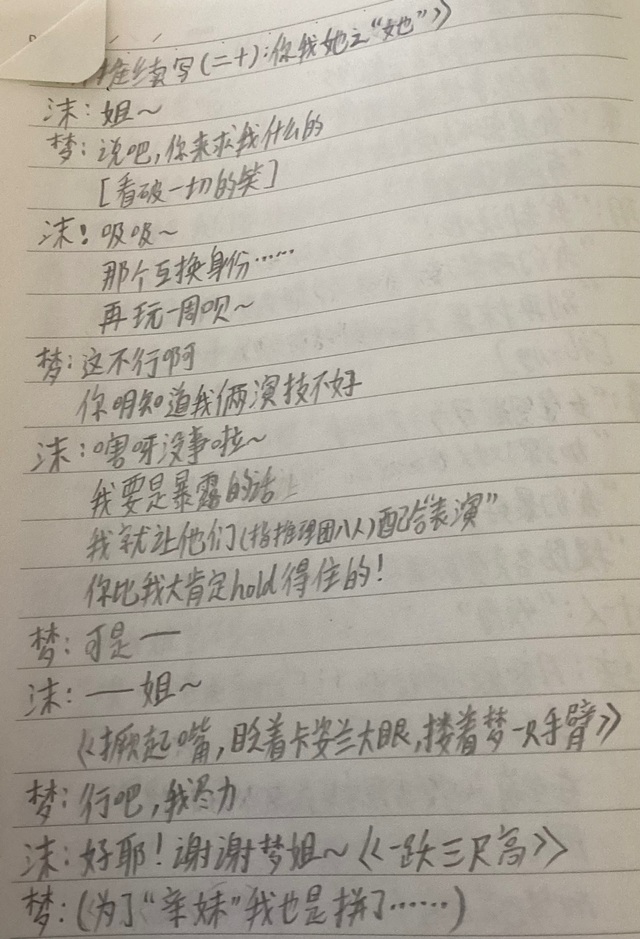 续写(二十):你我她之“她”》
沫:姐~
梦:说吧,你来求我什么的
[看破一切的笑]
沫:吸吸~
那个互换身份……
再玩一周呗~
梦:这不行啊
你明知道我俩演技不好
沫:嗐呀没事啦~
我要是暴露的话
我就让他们(指推理团八人)配合“表演”
你比我大肯定hold得住的!
梦:可是——
沫:——姐~
《撅起嘴,眨着卡姿兰大眼,搂着梦一只手臂》
梦:行吧,我尽力
沫:好耶!谢谢梦姐~《一跃三尺高》
梦:(为了“亲妹”我也是拼了……)